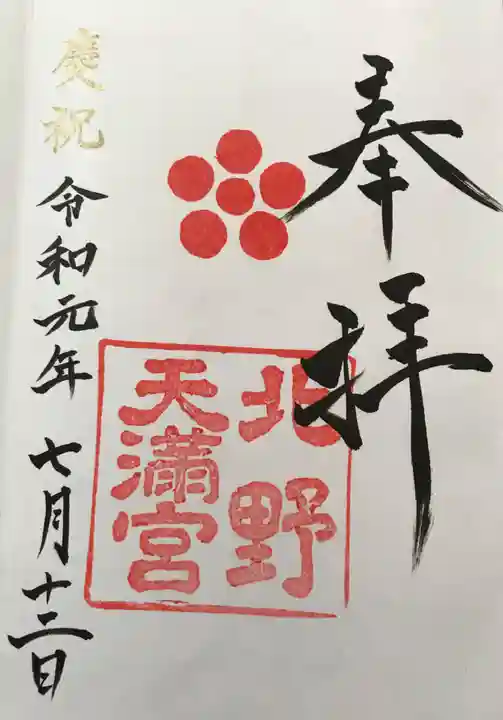 奉拝
北野
天満宮
慶祝
令和元年七月十三日